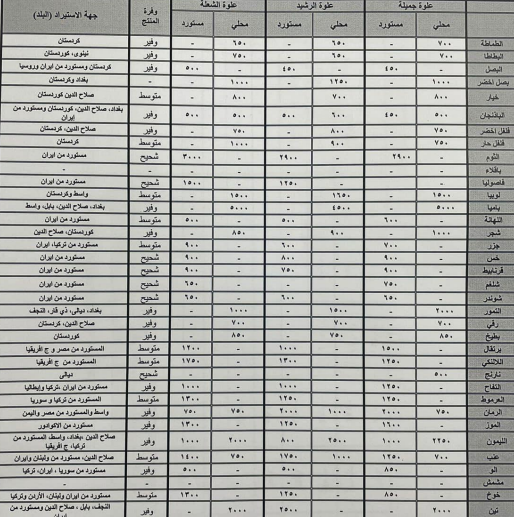 علوة جميلة علوة الرشيد علوة الشعلة وفرة المنتج جهة الاستيراد (البلد)
محلي مستورد محلي مستورد محلي مستورد
الطماطة ٧٠٠ - ٦٥٠ - ٦٥٠ - وفير كردستان
البطاطا ٧٠٠ - ٦٥٠ - ٧٥٠ - وفير نينوى، كوردستان
البصل - ٤٥٠ - ٤٥٠ - ٥٠٠ وفير كردستان ومستورد من ايران وروسيا
بصل اخضر ١٠٠٠ - ١٢٥٠ - ١٠٠٠ - - بغداد وكردستان
خيار ٨٠٠ - ٧٠٠ - ٨٠٠ - متوسط صلاح الدين كوردستان
الباذنجان ٥٠٠ ٤٥٠ ٦٠٠ ٥٠٠ ٥٠٠ ٥٠٠ وفير بغداد، صلاح الدين، كوردستان ومستورد من ايران
فلفل اخضر ٧٥٠ - ٨٠٠ - ٧٥٠ - وفير صلاح الدين، كردستان
فلفل حار ٧٥٠ - ٩٠٠ - ١٠٠٠ - متوسط كردستان
الثوم - ٢٩٠٠ - ٢٩٠٠ - ٣٠٠٠ شحيح مستورد من ايران
باقلاء - - - - - - - -
فاصوليا - - - ١٢٥٠ - ١٥٠٠ شحيح مستورد من ايران
لوبيا ١٥٠٠ - ١٦٥٠ - ١٥٠٠ - متوسط واسط وكردستان
باميا ٥٠٠٠ - ٤٥٠٠ - ٥٠٠٠ - وفير بغداد، صلاح الدين، بابل، واسط
اللهانة - ٦٠٠ - ٥٠٠ - ٥٠٠ متوسط مستورد من ايران
شجر ١٠٠٠ - ٩٠٠ - ٨٥٠ - وفير كوردستان، صلاح الدين
جزر - ٧٠٠ - ٦٠٠ - ٩٠٠ متوسط مستورد من تركيا، ايران
خس - ٩٠٠ - ٨٠٠ - ٩٠٠ شحيح مستورد من ايران
قرنابيط - ٩٠٠ - ٧٥٠ - ٩٠٠ شحيح مستورد من ايران
شلغم - ٧٥٠ - - - ٦٥٠ شحيح مستورد من ايران
شوندر - ٦٥٠ - ٦٠٠ - ٦٥٠ شحيح مستورد من ايران
التمور ٢٠٠٠ - ١٥٠٠ - ١٠٠٠ - وفير بغداد، ديالى، ذي قار، النجف
رقي ٧٠٠ - ٧٠٠ - ٧٠٠ - وفير صلاح الدين، كردستان
بطيخ ٨٥٠ - ٧٥٠ - ٨٥٠ - وفير كوردستان
برتقال - ١٥٠٠ - ١٠٠٠ - ١٢٠٠ متوسط المستورد من مصر و ج افريقيا
اللالنكي - ١٢٥٠ - ١٣٠٠ - ١٧٥٠ متوسط المستورد من ج افريقيا
نارنج ٥٠٠ - - - - - شحيح ديالى
التفاح - ١٢٥٠ - ١٠٠٠ - ١٠٠٠ وفير مستورد من ايران ،تركيا وإيطاليا
العرموط - ١٢٥٠ - ١٢٥٠ - ١٣٠٠ متوسط المستورد من تركيا و سوريا
الرمان ٧٥٠ ٢٠٠٠ ١٠٠٠ ٢٠٠٠ ٧٥٠ ٧٥٠ وفير واسط والمستورد من مصر واليمن
الموز - ١٦٠٠ - ١٢٥٠ - ١٣٠٠ وفير مستورد من الاكوادور
الليمون ٢٢٥٠ ١٠٠٠ ٢٥٠٠ ٨٠٠ ٢٠٠٠ ١٠٠٠ وفير صلاح الدين ،بغداد، واسط، المستورد من تركيا، ج افريقيا
عنب ٧٠٠ ١٢٥٠ ١٠٠٠ ١٧٥٠ ٧٥٠ ١٤٠٠ متوسط صلاح الدين، مستورد من ولبنان وايران
الو - ٨٥٠ - ٥٠٠ - ٥٠٠ وفير مستورد من سوريا ، ايران، تركيا
مشمش - - - - - - - -
خوخ - ٨٥٠ - ١٢٥٠ - ١٣٠٠ متوسط مستورد من ايران ولبنان، الأردن وتركيا
تين ٢٠٠٠ - ٢٥٠٠ - ٢٠٠٠ - وفير النجف، بابل ، صلاح الدين ومستورد من